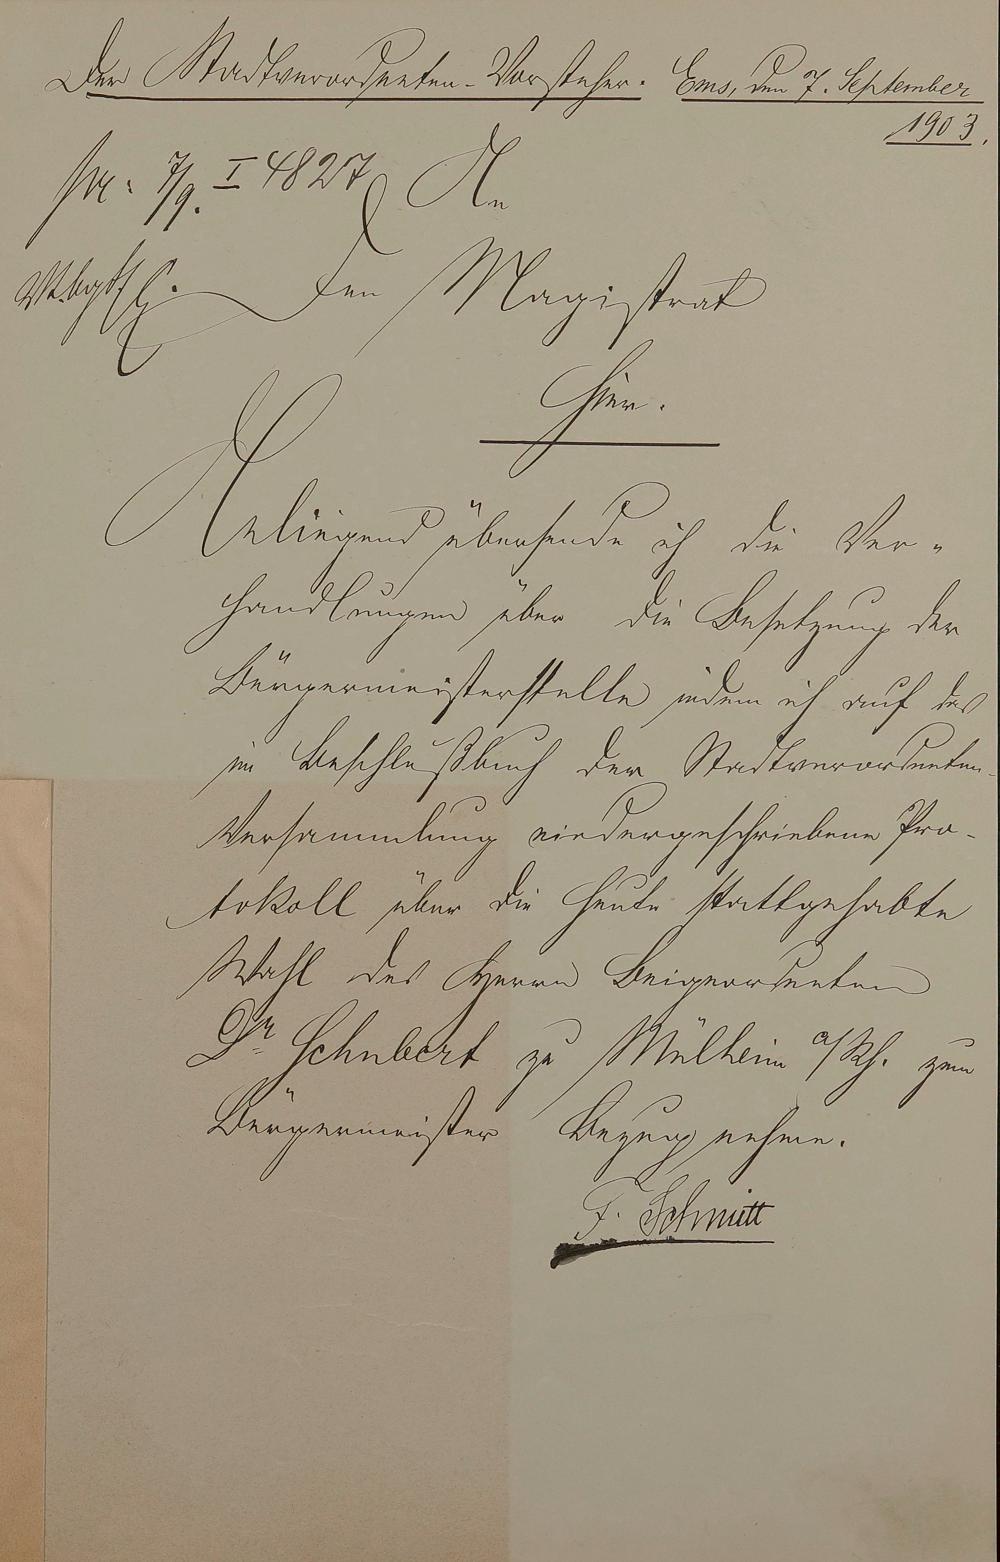 Der Stadtverordneten-Vorsteher. Ems, den 7. September
1903.
pr. 7/9. I 4827 An
den Magistrat
Hier.
Anliegend übersende ich die Ver-
handlungen über die Besetzung der
Bürgermeisterstelle indem ich auf das
im Beschlußbuch der Stadtverordneten-
Versammlung niedergeschriebene Pro-
tokoll über die heute stattgehabte
Wahl des Herrn Beigeordneten
Dr Schubert zu Mülheim a/Rh. zum
Bürgermeister Bezug nehme.
F. Schmitt